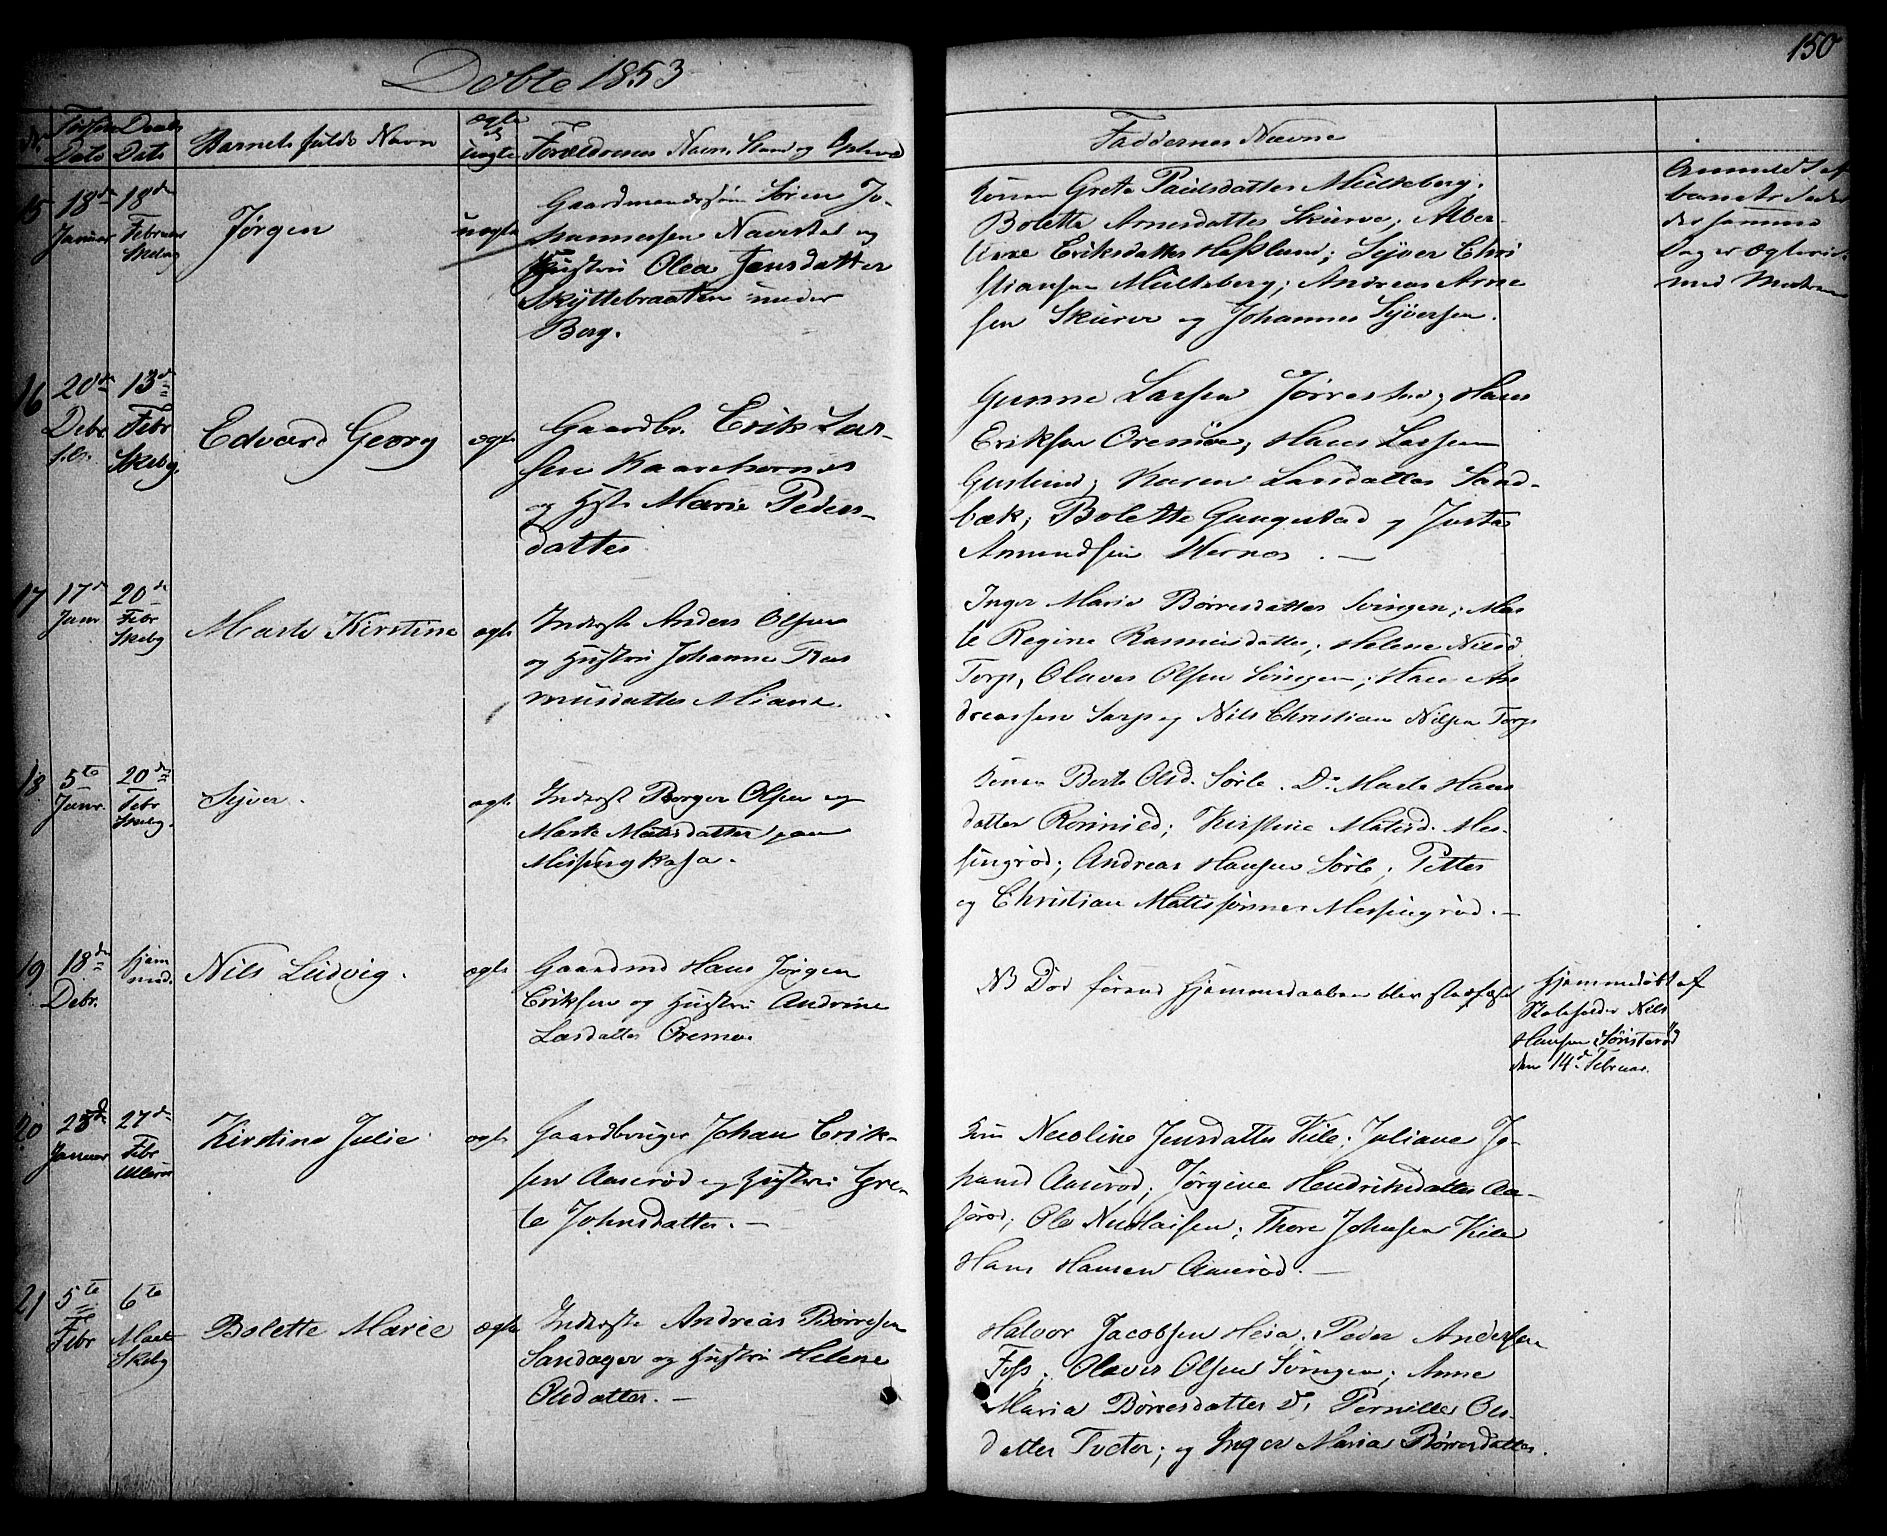 Døbte 1853
150
No.
Fødsels Dato
Daabs Dato
Barnets fulde Navn
ægte el uægte
Forældrenes Navn, Stand og Opholds
Faddernes Navne
15
18de Januar
18de Februar Skebg
Jørgen
uægte
Gaardmandssøn Søren Jo-
hannessen Navestad og
Olea Jensdatter
Skyttebraaten under
Borg.
Konen Grete Paulsdatter Mulkeberg;
Bolette Arnesdatter Skurve; Alber-
tine Eriksdatter Hasslund; Syver Chri
stiansen Mulkeberg; Andreas Arne
sen Skurve og Johannes Syversen.
Anmeldt af
barnets
der samme
Dag er Ægteviet
med Moderen
16
20de Debr.
13de Febr Skebg.
Edvard Georg
ægte
Gaardbr. Erik Lar-
sen
og Hst. Marie Peders-
datter
Gunne Larsen Jørrestad; Hans
Eriksen Oremoe; Hans Larsen
Guslund; Karen Larsdatter Sand-
bæk; Bolette Gungstad og Justas
Amundsen Hornes.
17
17de Janr
20de Febr Skebg
Marte Kirstine
ægte
Inderst Anders Olsen
og Hustru Johanne Ras
musdatter Miane.
Inger Marie Børresdatter Svingen; Mar
te Regine Rasmusdatter; Helene Nilsd.
Torp, Olaves Olsen Svingen; Hans An
dreassen Sarp og Nils Christian Nilsen Torp
18
5te Janr.
20de Febr Skebg.
Syver.
ægte
Inderst Borger Olsen og
Marte Matisdatter paa
Messingkasa.
Konen Berte Olsd. Sørle. Do Marte Hans
datter Romnied; Kirstine Matisd. Mes-
singrød; Andreas Hansen Sørle; Petter
og Christian Matissønner Messingrød.
19
18de Debr.
hjem med.
Nils Ludvig.
ægte
Gaardmd Hans Jørgen
Eriksen og Hustru Andrine
Larsdatter Oremo.
NB Død førend Hjemmedaaben blev stadfæstet
Hjemmedøbt af
Skoleholder Nils
Hansen Sønsterød
den 14de Februar.
20
23de Januar
27de Febr Ullerøe
Kirstine Julie
ægte
Gaardbruger Johan Erik-
sen Aaserød og Hustru Gre-
te Johnsdatter.
Kone Nicoline Jensdatter Kile; Juliane Jo-
hansd Aaserød; Jørgine Hendriksdatter Aa-
serød; Ole Nicolaisen; Thore Johnsen Kile
Hans Hansen Aaserød.
21
5te Febr
6te Marts Skebg
Bolette Marie
ægte
Inderste Andreas Børresen
Sandager og Hustru Helene
Olsdatter.
Halvor Jacobsen Heia; Peder Andersen
Foss; Olaves Olsen Svingen; Anne
Maria Børresdatter do; Pernille Ols-
datter Tveter; og Inger Maria Børresdatter.